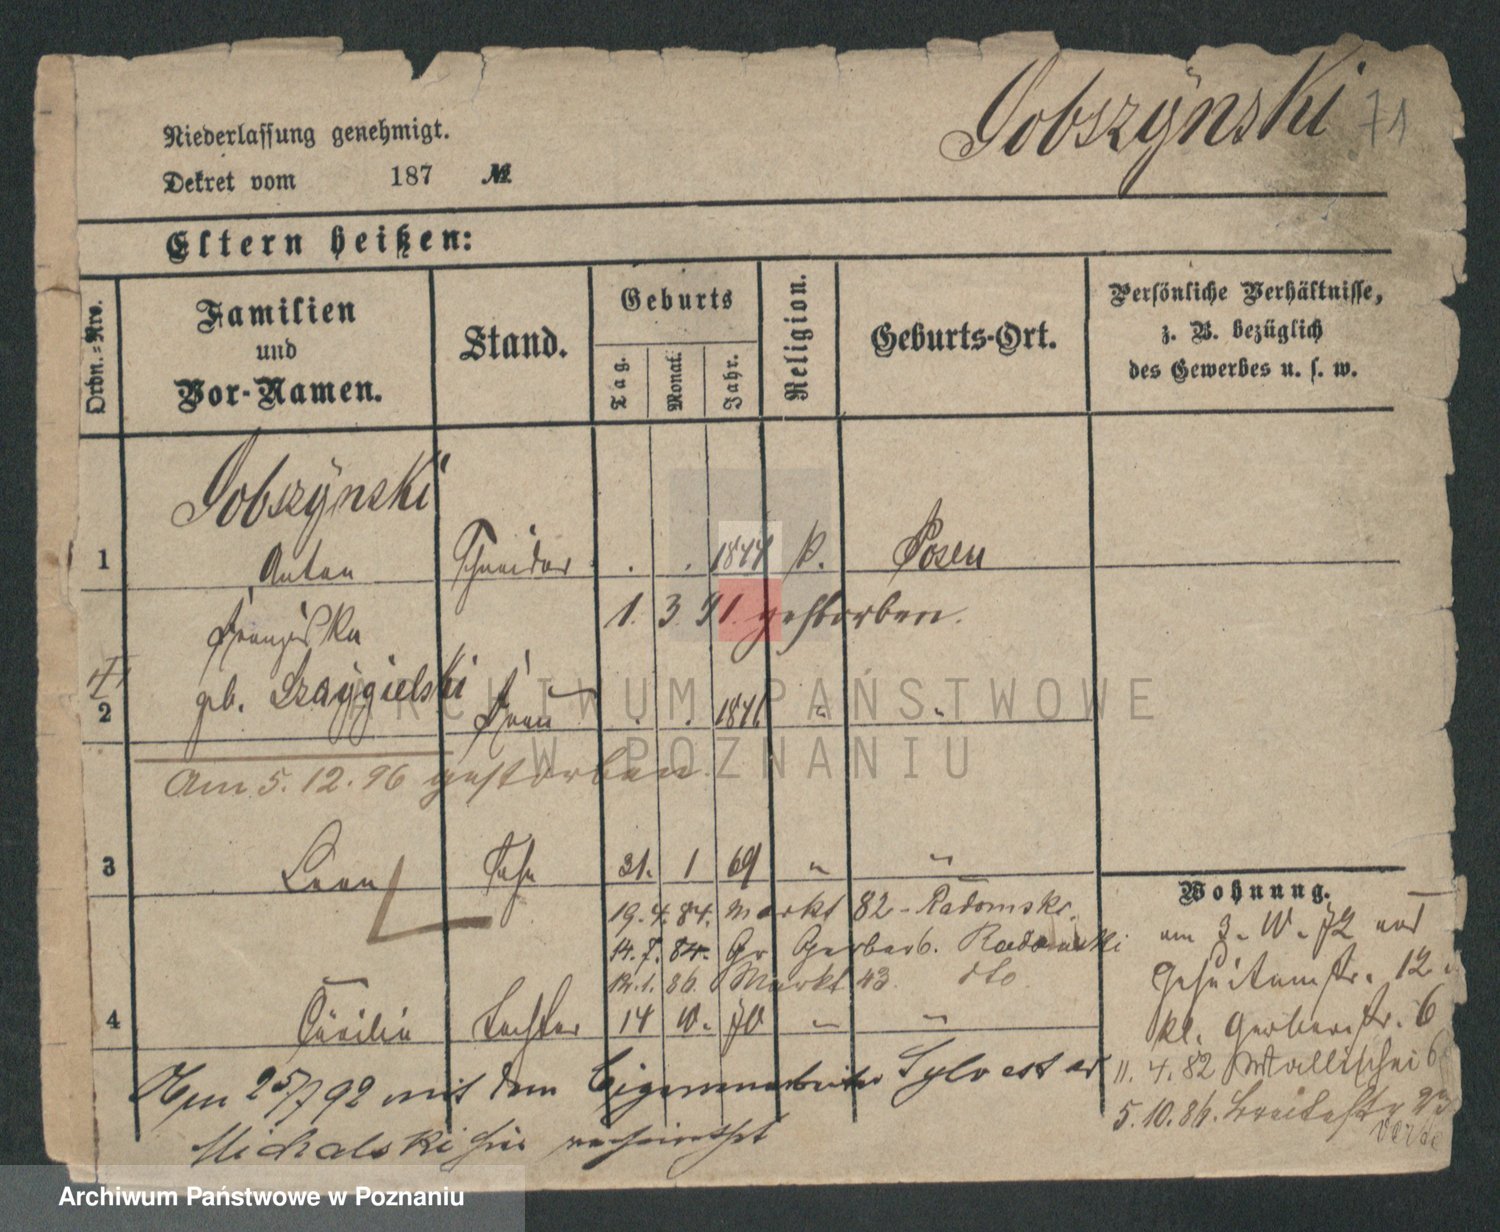 Niederlassung genehmigt.
Dekret vom 187 №
Gobszÿnski 71
Eltern heißen:
Ordn.=Nro.
Familien
und
Vor-Namen.
Stand.
Geburts
Tag. Monat. Jahr.
Religion.
Geburts-Ort.
Persönliche Verhältnisse,
z. B. bezüglich
des Gewerbes u. s. w.
Gobszÿnski
1 Anton Schneider . . 1844 k. Posen
Franziska 1. 3 91. gestorben.
2 geb. Frau . . 1846 " "
Am 5. 12. 96 gestorben.
3 Leon Sohn 31. 1 69 " "
19. 4. 84. Markt 82 - Radomski.
14. 7. 84. Gr Gerberb. Radomski
12. 1. 86. Markt 43. dto
4 Cäcilie Tochter 14 10. 70 " "
Am 25/7 92 mit dem Cigarrenarbeiter Sylvester
Michalski hier verheirathet
Wohnung.
am 3. 10. 72 von
Jesuitenstr. 12
kl. Gerberstr. 6
11. 4. 82 Wallischei 6
5. 10. 86. Breitestr 23
ARCHIWUM PAŃSTWOWE
W POZNANIU
Archiwum Państwowe w Poznaniu